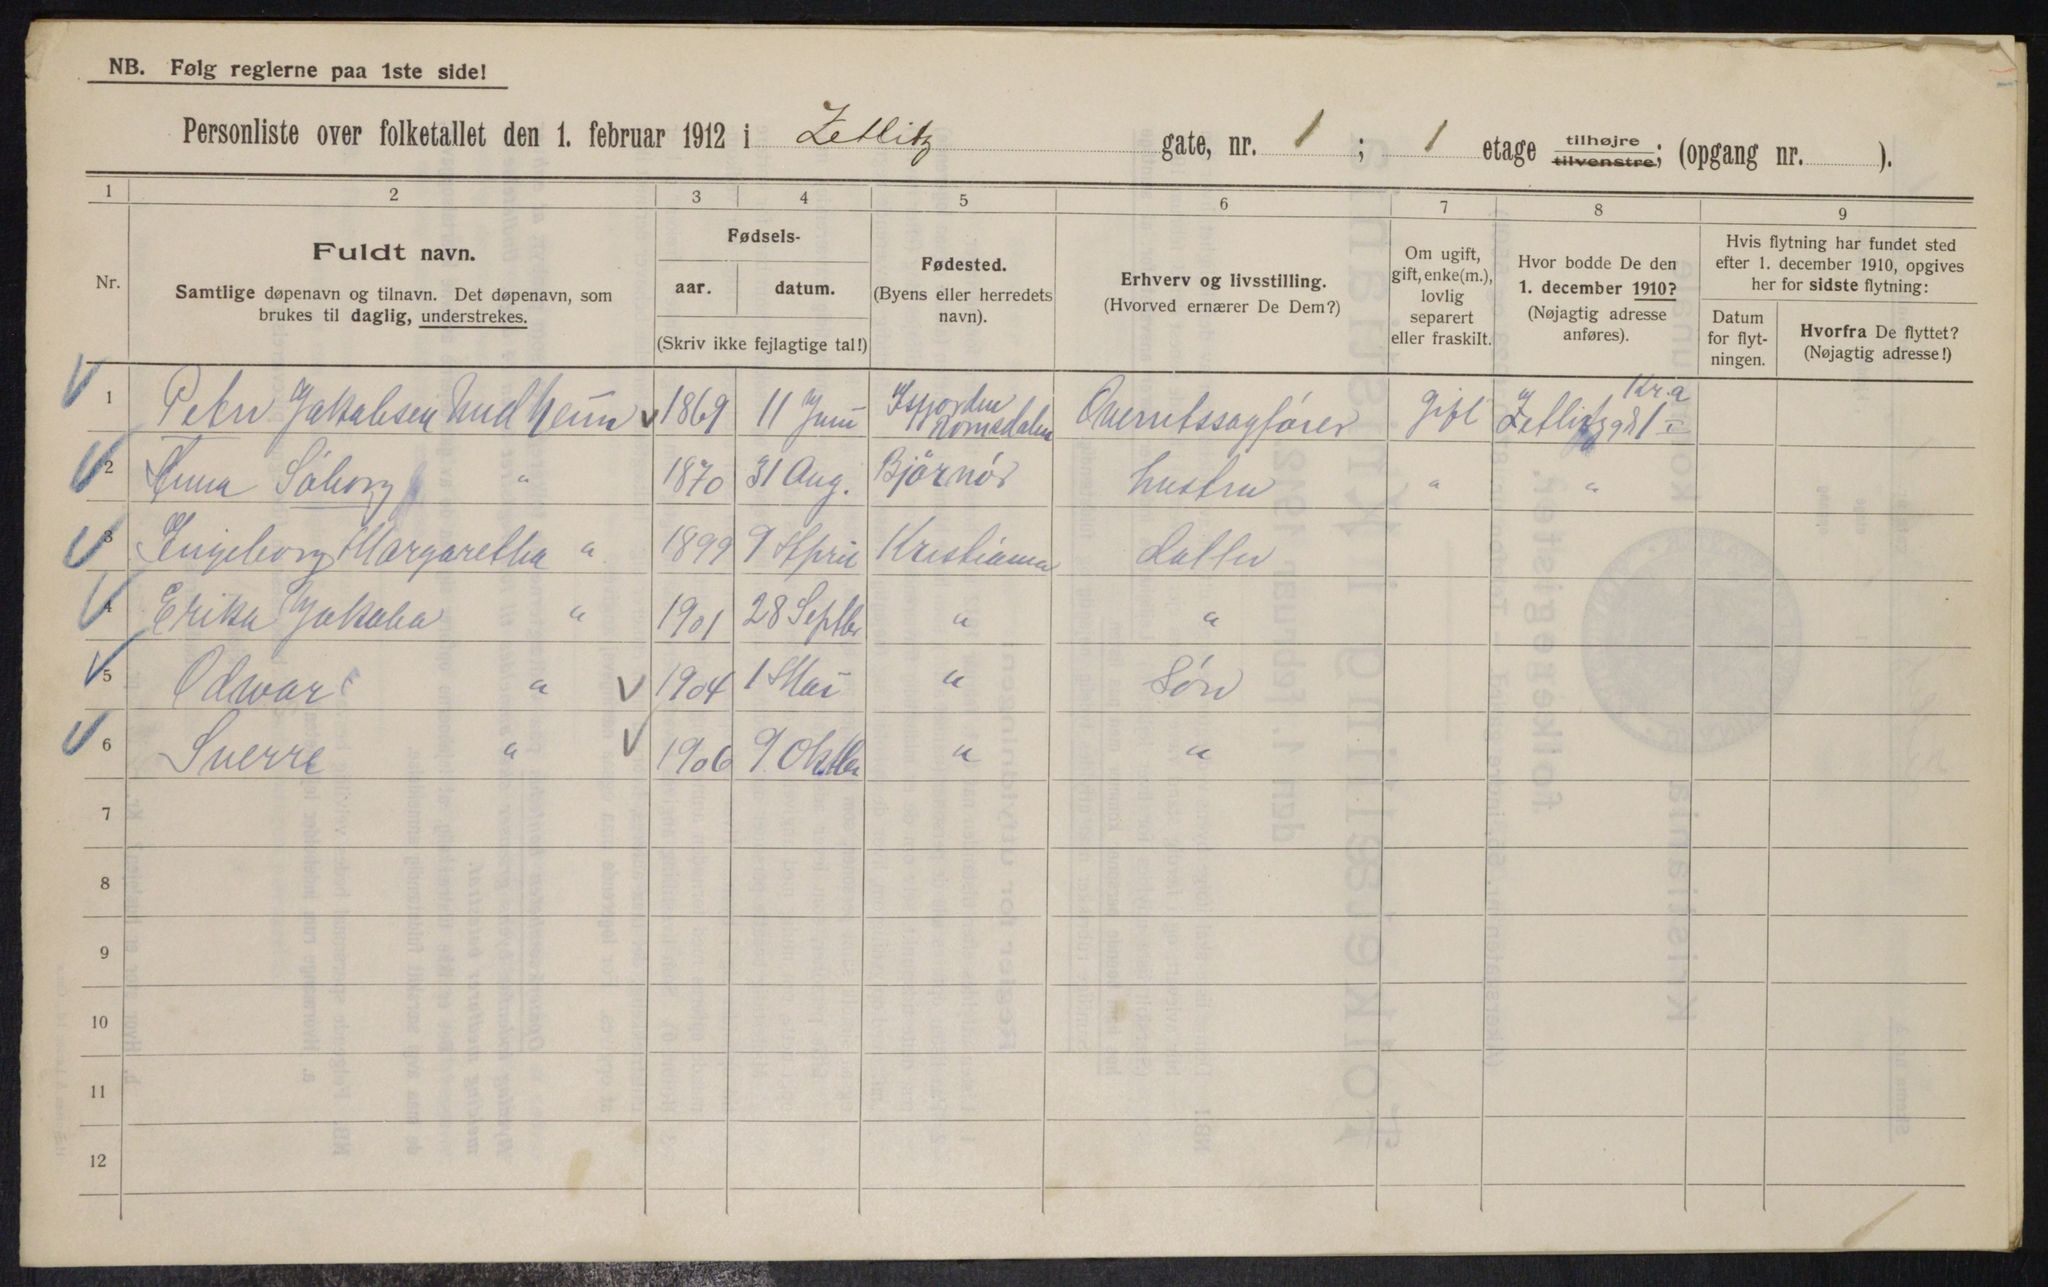 NB. Følg reglerne paa 1ste side!
Personliste over folketallet den 1. februar 1912 i Zetlitz gate, nr. 1 ; 1 etage tilhøjre tilvenstre; (opgang nr. ).
1 2 3 4 5 6 7 8 9
Nr.
Fuldt navn.
Samtlige døpenavn og tilnavn. Det døpenavn, som
brukes til daglig, understrekes.
Fødsels-
aar. datum.
(Skriv ikke fejlagtige tal!)
Fødested.
(Byens eller herredets
navn).
Erhverv og livsstilling.
(Hvorved ernærer De Dem?)
Om ugift,
gift, enke(m.),
lovlig
separert
eller fraskilt.
Hvor bodde De den
1. december 1910?
(Nøjagtig adresse
anføres).
Hvis flytning har fundet sted
efter 1. december 1910, opgives
her for sidste flytning:
Datum
for flyt-
ningen.
Hvorfra De flyttet?
(Nøjagtig adresse!)
1 Peter Jakobsen 1869 11 Juni Isfjorden Romsdalen Overretssagfører gift Zetlitzgd 1 Kr.a
2 Anna Søborg " 1870 31 Aug. Bjørnør hustru " "
3 Ingeborg Margaretha " 1899 9 April Kristiania datter
4 Erika Jakoba " 1901 28 Septbr " "
5 Odvar " 1904 1 Mai " Søn
6 Sverre " 1906 9 Oktbr " "
7
8
9
10
11
12